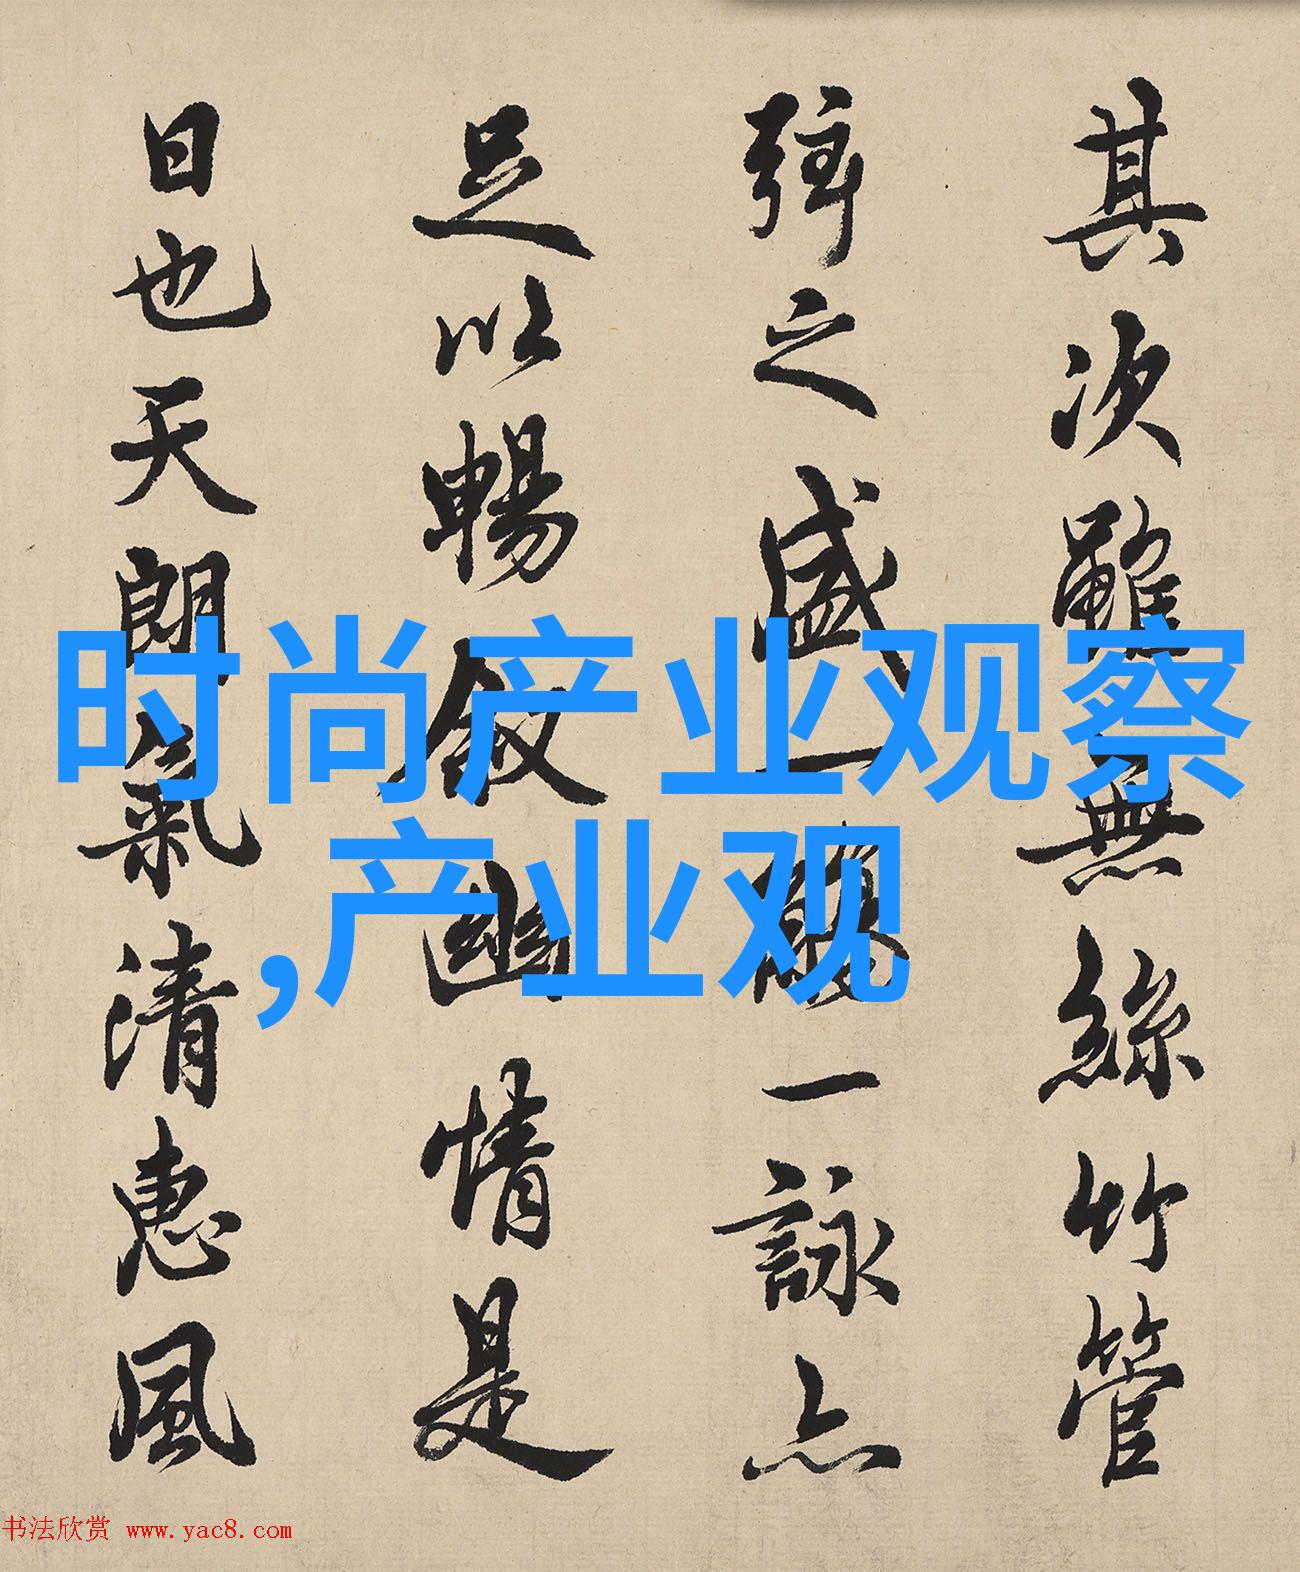 其次雖無絲竹管
弦之盛一觴一詠亦
足以暢敘幽情是
日也天朗氣清惠風
时尚产业观察
,产业观
书法欣赏 www.yac8.com